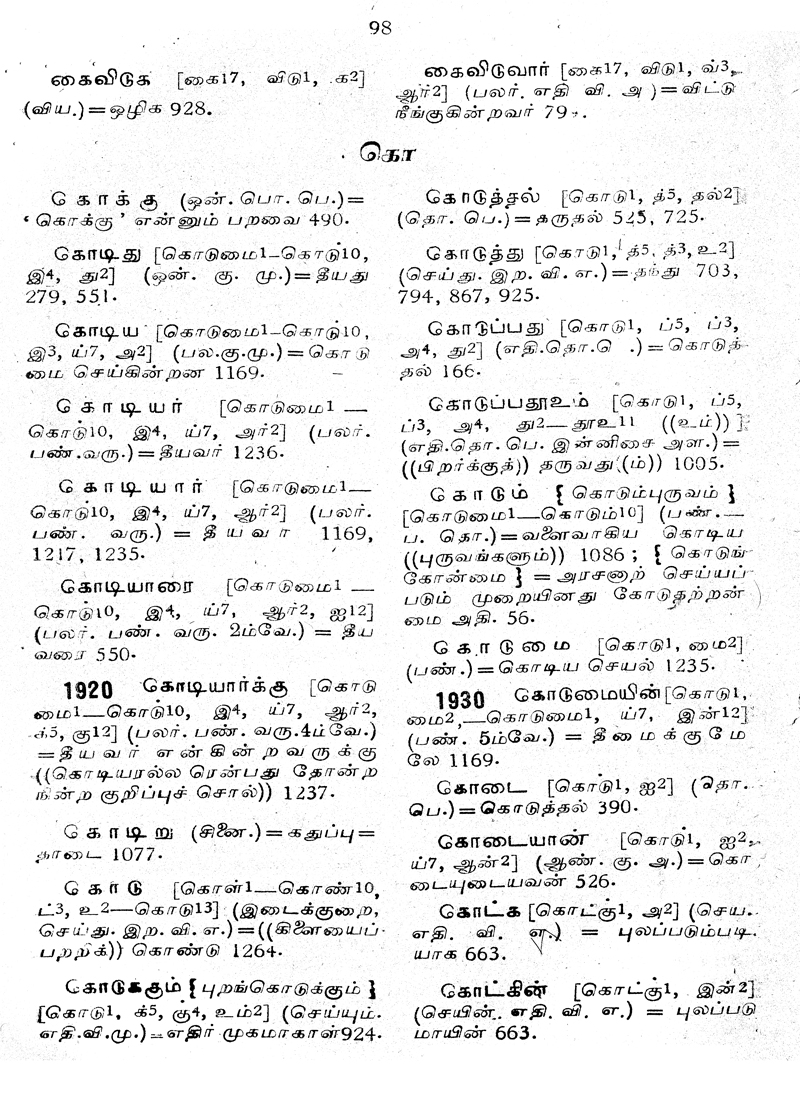 98
கைவிடுக [கை17, விடு1, க2]
(விய.)=ஒழிக 928.
கைவிடுவார் [கை17, விடு1, வ்3,
ஆர்2] (பலர். எதி வி. அ )=விட்டு
நீங்குகின்றவர் 79
கொ
கொக்கு (ஒன். பொ. பெ.)=
‘கொக்கு’ என்னும் பறவை 490.
கொடிது [கொடுமை1–கொடு்10,
இ4, து2] (ஒன். கு. மு.)=தீயது
279, 551.
கொடிய [கொடுமை1–கொடு்10,
இ3, ய்7, அ2] (பல.கு.மு.)=கொடு
மை செய்கின்றன 1169.
கொடியர் [கொடுமை1 —
கொடு்10, இ4, ய்7, அர்2] (பலர்.
பண்.வரு.)=தீயவர் 1236.
கொடியார் [கொடுமை1—
கொடு்10, இ4, ய்7, ஆர்2] (பலர்.
பண். வரு.) = தீயவர் 1169,
1217, 1235.
கொடியாரை [கொடுமை1 —
கொடு்10, இ4, ய்7, ஆர்2, ஐ12]
(பலர். பண். வரு. 2ம்வே.) = தீய
வரை 550.
1920 கொடியார்க்கு [கொடு
மை1—கொடு்10, இ4, ய்7, ஆர்2,
க்5, கு12] (பலர். பண். வரு.4ம்வே.)
=தீயவர் என்கின்றவருக்கு
((கொடியரல்ல ரென்பது தோன்ற
நின்ற குறிப்புச் சொல்)) 1237.
கொடிறு (சினை.)=கதுப்பு=
தாடை 1077.
கொடு [கொள்1—கொண்10,
ட்3, உ2—கொடு13] (இடைக்குறை,
செய்து. இற. வி. எ.)=((கிளையைப்
பற்றிக்)) கொண்டு 1264.
கொடுக்கும் { புறங்கொடுக்கும் }
[கொடு1, க்5, கு்4, உம்2] (செய்யும்.
எதி.வி.மு.)=எதிர் முகமாகாள்924.
கொடுத்தல் [கொடு1, த்5, தல்2]
(தொ. பெ.)=தருதல் 525, 725.
கொடுத்து [கொடு1, த்5, த்3, உ2]
(செய்து. இற. வி. எ.)=தந்து 703,
794, 867, 925.
கொடுப்பது [கொடு1, ப்5, ப்3,
அ4, து2] (எதி.தொ.பெ .)=கொடுத்
தல் 166.
கொடுப்பதூஉம் [கொடு1, ப்5,
ப்3, அ4, து2—தூஉ11 ((உம்)) ]
(எதி.தொ. பெ. இன்னிசை அள.)=
((பிறர்க்குத்)) தருவது (ம்)) 1005.
கொடும் { கொடும்புருவம் }
[கொடுமை1—கொடும்10] (பண்.—
ப. தொ.)=வளைவாகிய கொடிய
((புருவங்களும்)) 1086 ; { கொடுங்
கோன்மை } = அரசனாற் செய்யப்
படும் முறையினது கோடுதற்றன்
மை அதி. 56.
கொடுமை [கொடு1, மை2]
(பண்.)=கொடிய செயல் 1235.
1930 கொடுமையின்[கொடு1,
மை2,—கொடுமை1, ய்7, இன்12]
(பண். 5ம்வே.) = தீமைக்குமே
லே 1169.
கொடை [கொடு1, ஐ2] (தொ.
பெ.)=கொடுத்தல் 390.
கொடையான் [கொடு1, ஐ2,
ய்7, ஆன்2] (ஆண். கு. அ.)=கொ
டையுடையவன் 526.
கொட்க [கொட்கு்1, அ2] (செய.
எதி. வி. எ.) = புலப்படும்படி
யாக 663.
கொட்கின் [கொட்கு்1, இன்2]
(செயின். எதி. வி. எ.) = புலப்படு
மாயின் 663.